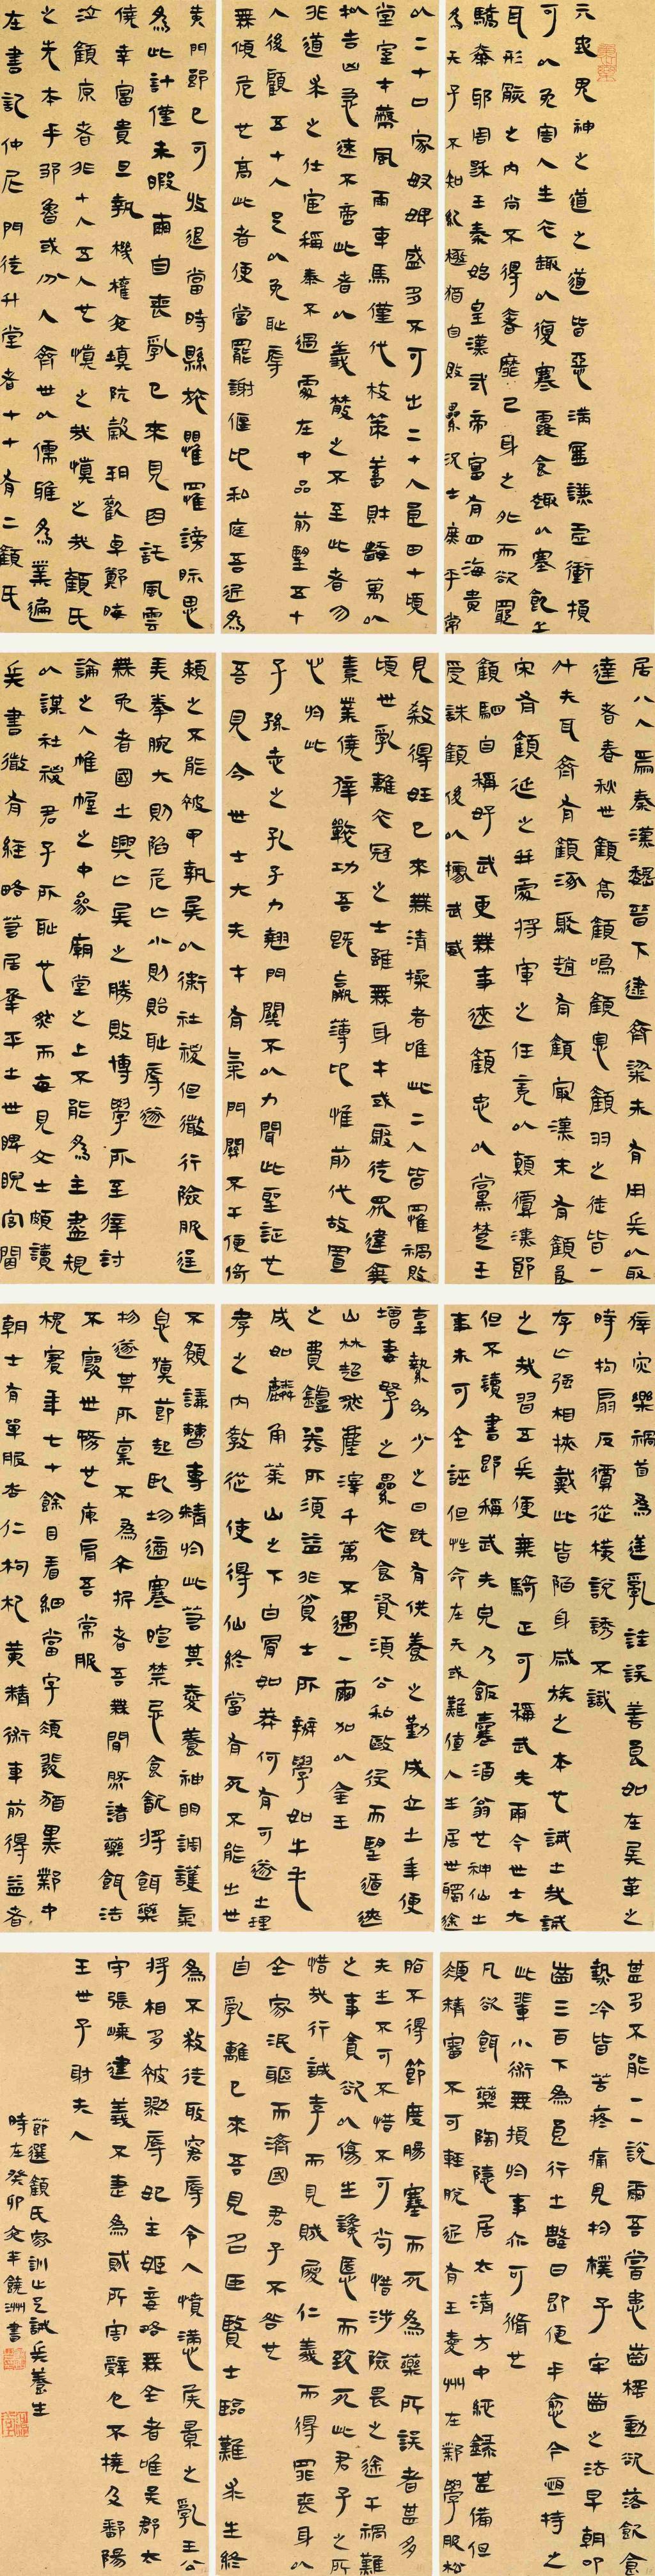 天地鬼神之道之道皆惡滿盈謙虛衝損
可以免害人生衣趣以復寒露食趣以塞飢乏
耳形骸之內尚不得奢靡己身之外而欲窮
驕泰邪周穆王秦始皇漢武帝富有四海貴
為天子不知紀極猶自敗累況士庶乎常
以二十口家奴婢盛多不可出二十人良田十頃
堂室才蔽風雨車馬僅代杖策蓄財數萬以
擬吉凶急速不啻此者以義散之不至此者勿
非道求之仕宦稱泰不過處在中品前望五十
人後顧五十人足以免恥辱
無傾危也高此者便當罷謝偃仰私庭吾近為
黃門郎已可收退當時羈旅懼罹謗讟思
為此計僅未暇爾自喪亂已來見因託風雲
僥幸富貴旦執機權夜填阬谷朔歡卓鄭晦
泣顏原者非十人五人也慎之哉慎之哉顏氏
之先本乎鄒魯或分入齊世以儒雅為業遍
在書記仲尼門徒升堂者七十有二顏氏
居八人焉秦漢魏晉下逮齊梁未有用兵以取
達者春秋世顏高顏鳴顏息顏羽之徒皆一
鬥夫耳齊有顏涿聚趙有顏冣漢末有顏良
宋有顏延之并處將軍之任竟以顛覆漢郎
顏駟自稱好武更無事迹顏忠以黨楚王
受誅顏俊以據武威
見殺得姓已來無清操者唯此二人皆罹禍敗
頃世亂離衣冠之士雖無身手或聚徒眾違棄
素業僥倖戰功吾既羸薄仰惟前代故置
心於此
子孫志之孔子力翹門關不以力聞此聖証也
吾見今世士大夫才有氣門關不干便倚
賴之不能被甲執兵以衛社稷但微行險服逞
弄拳腕大則陷危亡小則貽恥辱遂
無免者國之興亡兵之勝敗博學所至幸討
論之入帷幄之中參廟堂之上不能為主盡規
以謀社稷君子所恥也然而每見文士頗讀
兵書微有經略若居承平之世睥睨宮閫
幸災樂禍首為逆亂詿誤善良如在兵革之
時构扇反覆從橫說誘不識
存亡強相扶戴此皆陷身滅族之本也誡之哉誡
之哉習五兵便乘騎正可稱武夫爾今世士大夫
但不讀書即稱武夫兒乃飯囊酒甕也神仙之
事未可全誣但性命在天或難值人生居世觸途
牽縶幼少之日既有供養之勤成立之年便
增妻孥之累衣食資須公私敺役而望遁迹
山林超然塵滓千萬不遇一爾加以金玉
之費鑪器所須益非貧士所辦學如牛毛
成如麟角華山之下白骨如莽何有可遂之理
考之內教從使得仙終當有死不能出世
不願汝曹專精於此若其愛養神明調護氣
息慎節起臥均適寒暄禁忌食飲將餌藥
物遂其所稟不為夭折者吾無間然諸藥餌法
不廢世務也庾肩吾常服
槐實年七十餘目看細字鬚髮猶黑鄴中
朝士有單服杏仁枸杞黃精術車前得益者
甚多不能一一說爾吾嘗患齒搖動欲落飲食
熱冷皆苦疼痛見抱樸子牢齒之法早朝叩
齒三百下為良行之數日即便平愈今恆持之
此輩小術無損於事亦可脩也
凡欲餌藥陶隱居太清方中總錄甚備但
須精審不可輕脫近有王愛州在鄴學服松
脂不得節度腸塞而死為藥所誤者甚多
夫生不可不惜不可苟惜涉險畏之途干禍難
之事貪欲以傷生讒慝而致死此君子之所
惜哉行誠孝而見賊履仁義而得罪喪身以
全家泯軀而濟國君子不咎也
自亂離已來吾見名臣賢士臨難求生終
為不救徒取窘辱令人憤懣侯景之亂王公
將相多被戮辱妃主姬妾略無全者唯吳郡太
守張嵊建義不捷為賊所害辭色不撓及鄱陽
王世子謝夫人
節選顏氏家訓止足誡兵養生
時在癸卯之年饒洲書